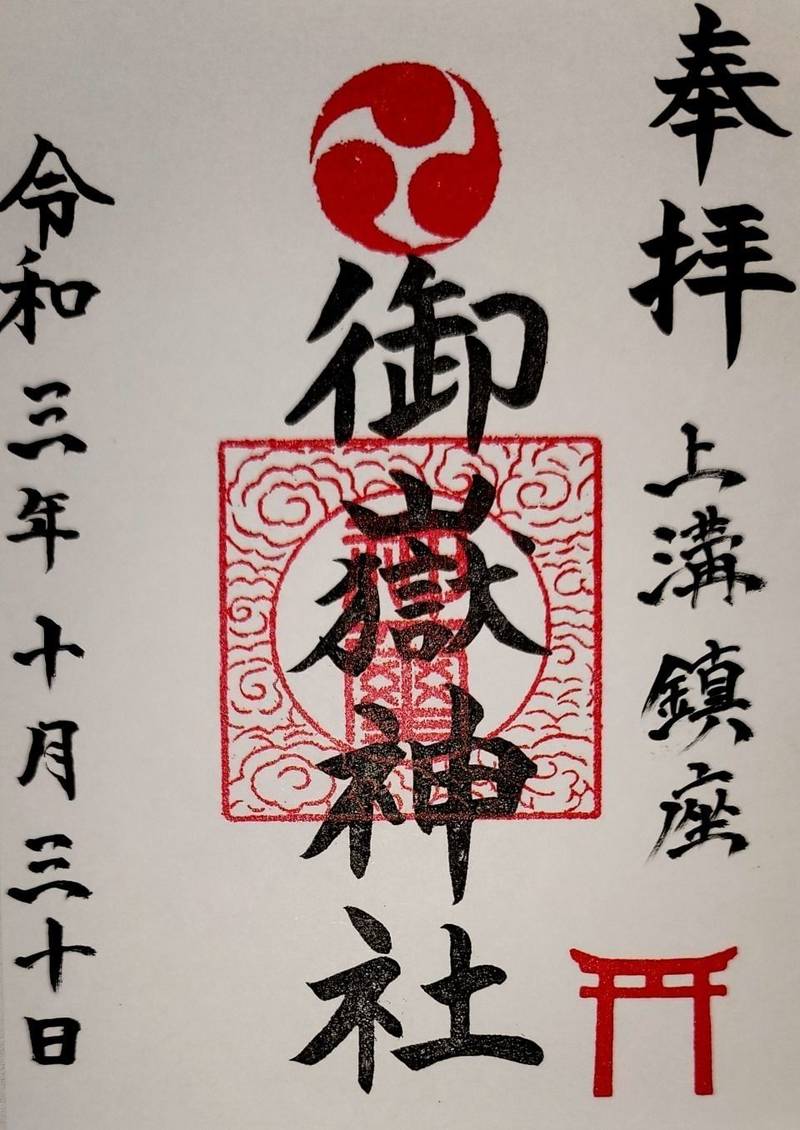 奉拝
上溝鎮座
御嶽神社
令和三年十月三十日